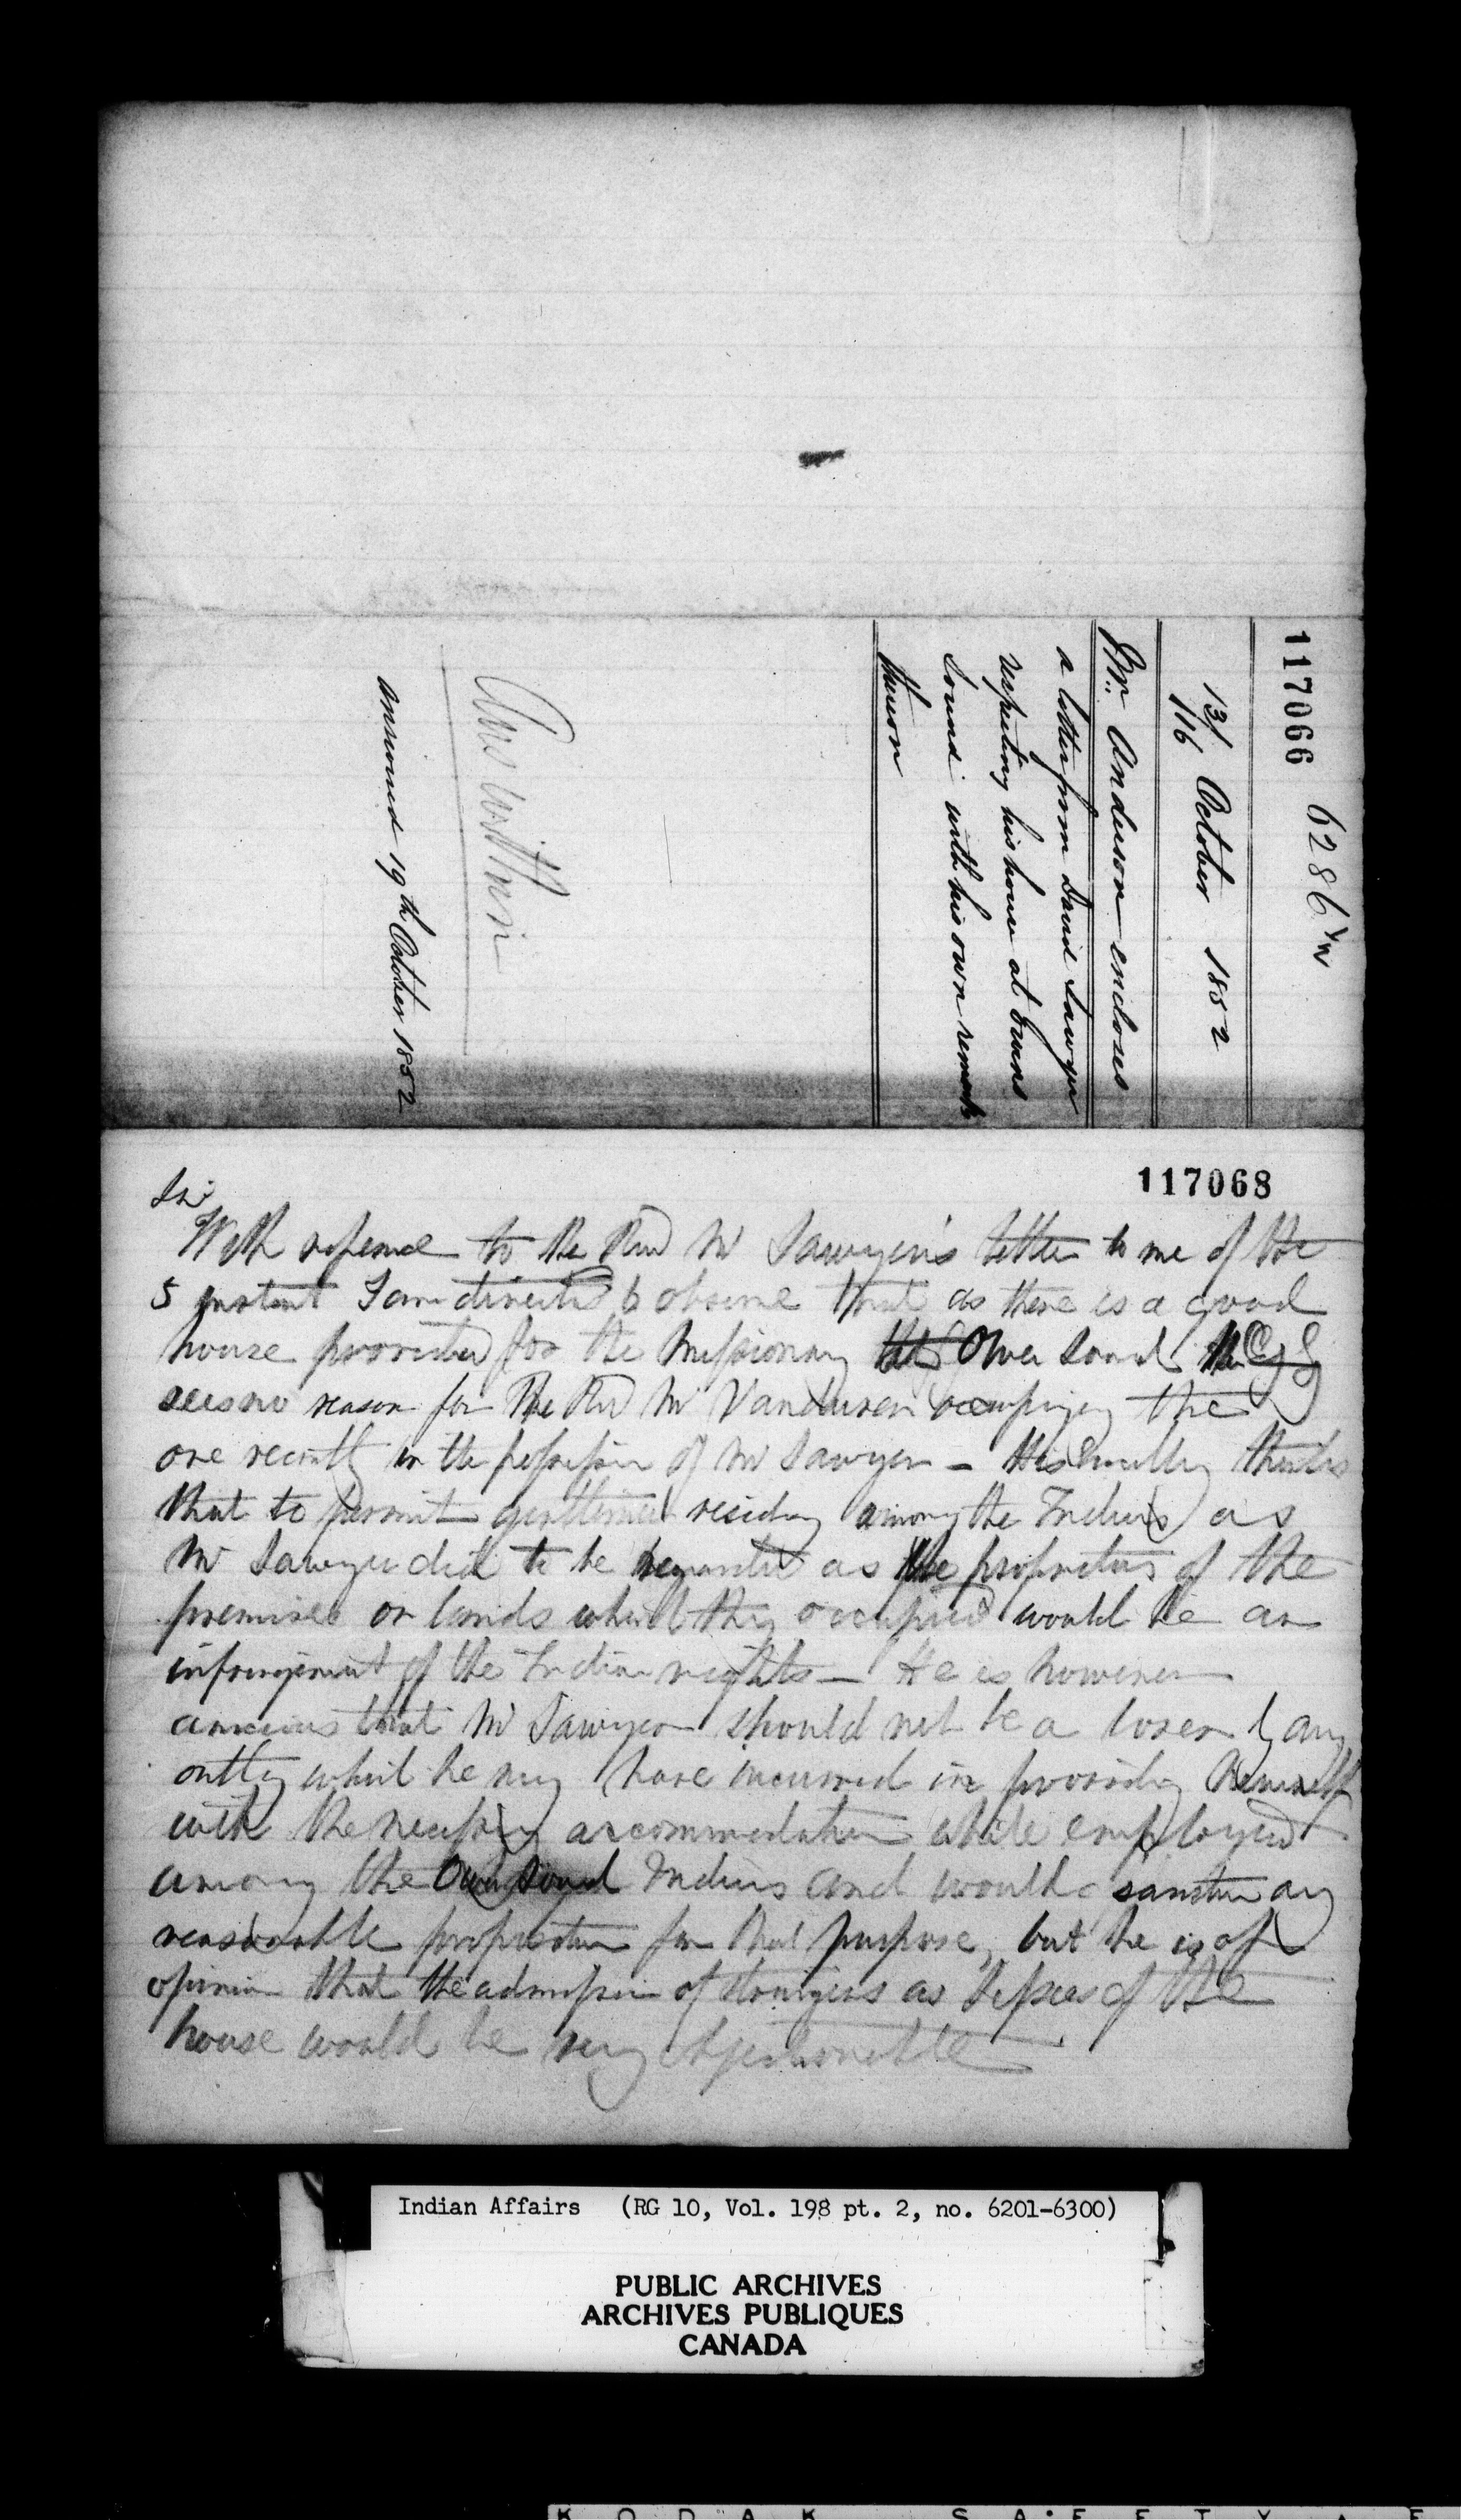 117066 6286 1/2
13/116 October 1852
Mr. Anderson encloses
a letter from David Sawyer
respecting his house at Owens
Sound with his own remarks
thereon
Ans within
answered 19th October 1852
117068
Sir
With reference to the Revd Mr Sawyer's letter to me of the
5 instant I am directed to observe that as there is a good
house provided for the Missionary Owen Sound
sees no reason for the Revd Mr Vandusen occupying the
one recently in the possession of Mr Sawyer - His Excellency thinks
that to permit gentlemen residing among the Indians as
Mr Sawyer did to be regarded as the proprietors of the
premises or lands which they occupied would be an
infringement of the Indian rights - He is however
anxious that Mr Sawyer should not be a loser by any
outlay which he may have incurred in providing himself
with the necessary accommodation while employed
among the Owen Sound Indians and would sanction any
reasonable proposition for that purpose, but he is of
opinion that the admission of strangers as lessees of the
house would be very objectionable
Indian Affairs (RG 10, Vol. 198 pt. 2, no. 6201-6300)
PUBLIC ARCHIVES
ARCHIVES PUBLIQUES
CANADA
KODAK SAFETY